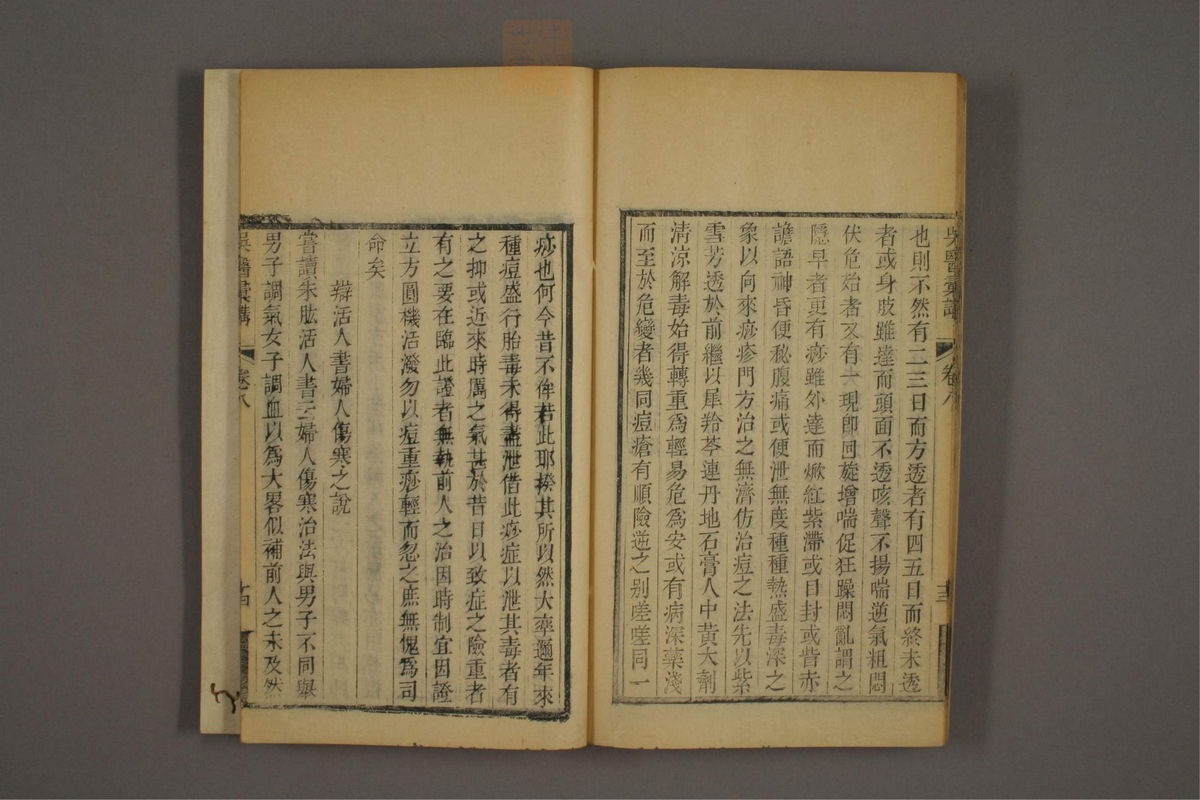 也則不然有二三日而方透者有四五日而終未透
者或身肢雖達而頭面不透咳聲不揚喘逆氣粗悶
伏危殆者又有一現卽回旋增喘促狂躁悶亂謂之
隱早者更有痧雖外達而焮紅紫滯或目封或眥赤
譫語神昏便秘腹痛或便泄無度種種熱盛毒深之
象以向來痧疹門方治之無濟仿治痘之法先以紫
雪芳透於前繼以犀羚芩連丹地石膏人中黃大劑
清凉解毒始得轉重爲輕易危爲安或有病深藥淺
而至於危變者幾同痘瘡有順險逆之别嗟嗟同一
痧也何今昔不侔若此耶揆其所以然大率邇年來
種痘盛行胎毒未得盡泄借此痧症以泄其毒者有
之抑或近來時厲之氣甚於昔日以致症之險重者
有之要在臨此證者無執前人之治因時制宜因證
立方圓機活潑勿以痘重痧輕而忽之庶無愧爲司
命矣
辯活人書婦人傷寒之說
嘗讀朱肱活人書云婦人傷寒治法與男子不同舉
男子調氣女子調血以爲大畧似補前人之未及然
吳醫彙講
卷八